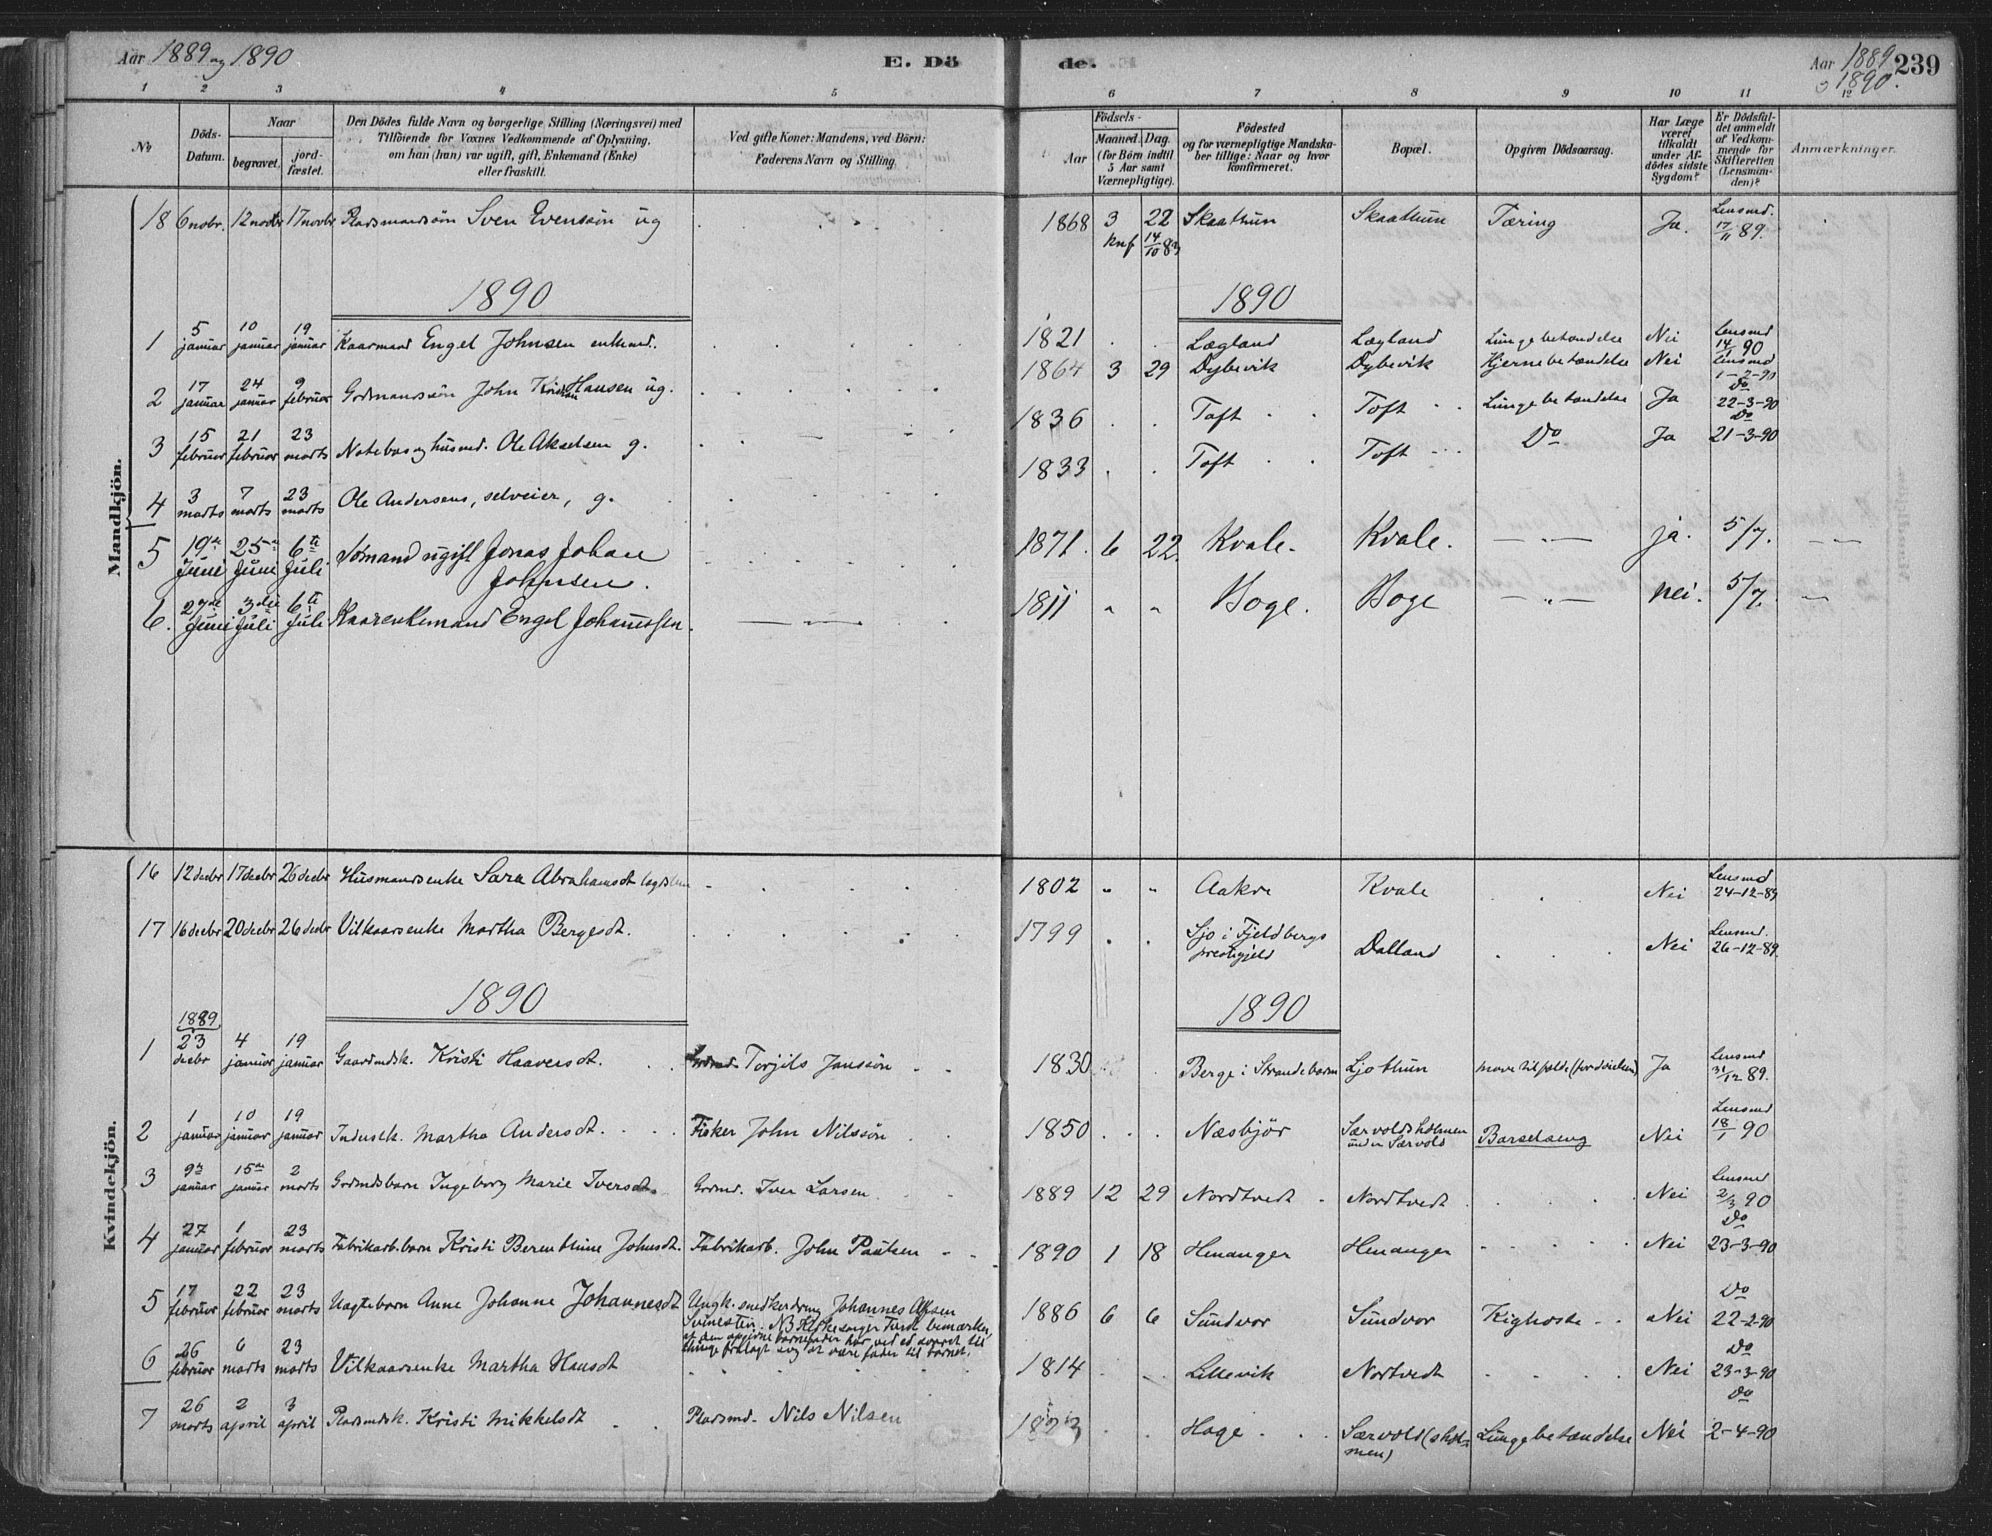 Aar 1889 og 1890
E. Dö
de.
Aar 1889 o 1890.
239
1 2 3 4 5 6 7 8 9 10 11 12
No
Döds-Datum.
Naar
begravet.
jord-fæstet.
Den Dödes fulde Navn og borgerlige Stilling (Næringsvei) med
Tilföiende for Voxnes Vedkommende af Oplysning,
om han (hun) var ugift, gift, Enkemand (Enke)
eller fraskilt.
Ved gifte Koner: Mandens, ved Börn:
Faderens Navn og Stilling.
Födsels-
Aar
Maaned. Dag.
(for Börn indtil
5 Aar samt
Værnepligtige).
Födested
og for værnepligtige Mandska-
ber tillige: Naar og hvor
konfirmeret.
Bopæl.
Opgiven Dödsaarsag.
Har Læge
været
tilkaldt
under Af-
dödes sidste
Sygdom?
Er Dödsfal-
det anmeldt
af Vedkom-
mende for
Skifteretten
(Lensman-
den)?
Anmærkninger.
Mandkjön.
18 6 novbr. 12 novbr 17 novbr Pladsmandssön Sven Evensön ug 1868 3 22 Skaathun Skaathun Tæring Ja. Lensmd. 17/11 89.
Knf 14/10 83
1890
1890
1 5 januar 10 januar 19 januar Kaarmand Engel Johnsen enkmd. 1821 Lægland Lægland Lungebetændelse Nei Lensmd 14/1 90
2 17 januar 24 januar 9 februar Grdmandssön John Kristian Hansen ug. 1864 3 29 Dybevik Dybevik Hjernebetændelse Nei Lensmd 1-2-90
3 15 februar 21 februar 23 marts Notebas og husmd. Ole Akselsen g. 1836 Toft Toft Lungebetændelse Ja Do 22-3-90
4 3 marts 7 marts 23 marts Ole Andersens, selveier, g. 1833 Toft Toft Do Ja Do 21-3-90
5 19de Juni 25de Juni 6te Juli Sømand ugift Jonas Johan Johnsen. 1871. 6 22. Kvale. Kvale. — „ — ja. 5/7. — „ —
6. 27de Juni 3die Juli 6te Juli Kaarenkemand Engel Johannessen. — „ — 1811 „ „ Hoge. Hoge — „ — nei. 5/7. — „ —
Kvindekjön.
16 12 decbr 17 decbr 26 decbr Husmandsenke Sara Abrahamsdt 1802 „ „ Aakre Kvale Nei Lensmd 24-12-89
17 16 decbr 20 decbr 26 decbr Vilkaarsenke Martha Bergesdt. 1799 Sjo i Fjeldbergs prestegjeld Dalland Nei Lensmd. 26-12-89.
1890
1890
1 1889 23 decbr 4 januar 19 januar Gaardmdsk. Kristi Haaversdt. Grdmd. Torjils Jonssön 1830 Berge i Strandebarm Ljothun Ja Lensmd 31/12 89.
2 1 januar 10 januar 19 januar Inderstk. Martha Andersdt. Fisker John Nilssön 1850 Næsbjör Særvoldsholmen under Særvold Barselseng Nei Lensmd 18/1 90
3 9de januar 15de januar 2 marts Grdmdsbarn Ingeborg Marie Iversdt. Grdmd. Iver Larsen 1889 12 29 Nordtvedt Nordtvedt Nei Lensmd 2/3 90
4 27 januar 1 februar 23 marts Fabrikarb.barn Kristi Berenthine Johnsdt. Fabrikarb. John Paulsen 1890 1 18 Henanger Henanger Nei Do 23-3-90
5 17 februar 22 februar 23 marts Uægtebarn Anne Johanne Johannesdt Ungk. snedkerdreng Johannes Olsen Svinesten. NB
at den opgivne barnefader har ved ed svaret til
thinge fralagt sig at være fader til barnet. 1886 6 6 Sundvor Sundvor Kighoste Nei Do 22-2-90
6 26 februar 6 marts 23 marts Vilkaarsenke Martha Hansdt 1814 Lillevik Nortvedt Nei Do 23-3-90
7 26 marts 2 april 3 april Pladsmdsk. Kristi Mikkelsdt Pladsmd. Nils Nilsen 1823 Hage Særvold (sholmen) Lungebetændelse Nei Do 2-4-90